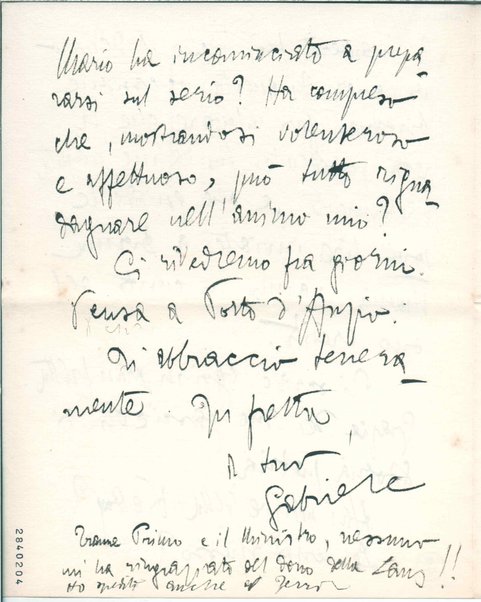 Mario ha incominciato a prepa
rarsi sul serio? Ha compreso
che, mostrandosi volenteroso
e affettuoso, può tutto rigua
dagnare nell'animo mio?
Ci rivedremo fra giorni.
Pensa a Porto d'Anzio.
Ti abbraccio tenera-
mente. In fretta,
il tuo
Gabriele
Tranne Primo e il Ministro, nessuno
mi ha ringraziato del dono della Laus!!
Ho spedito anche
2840204